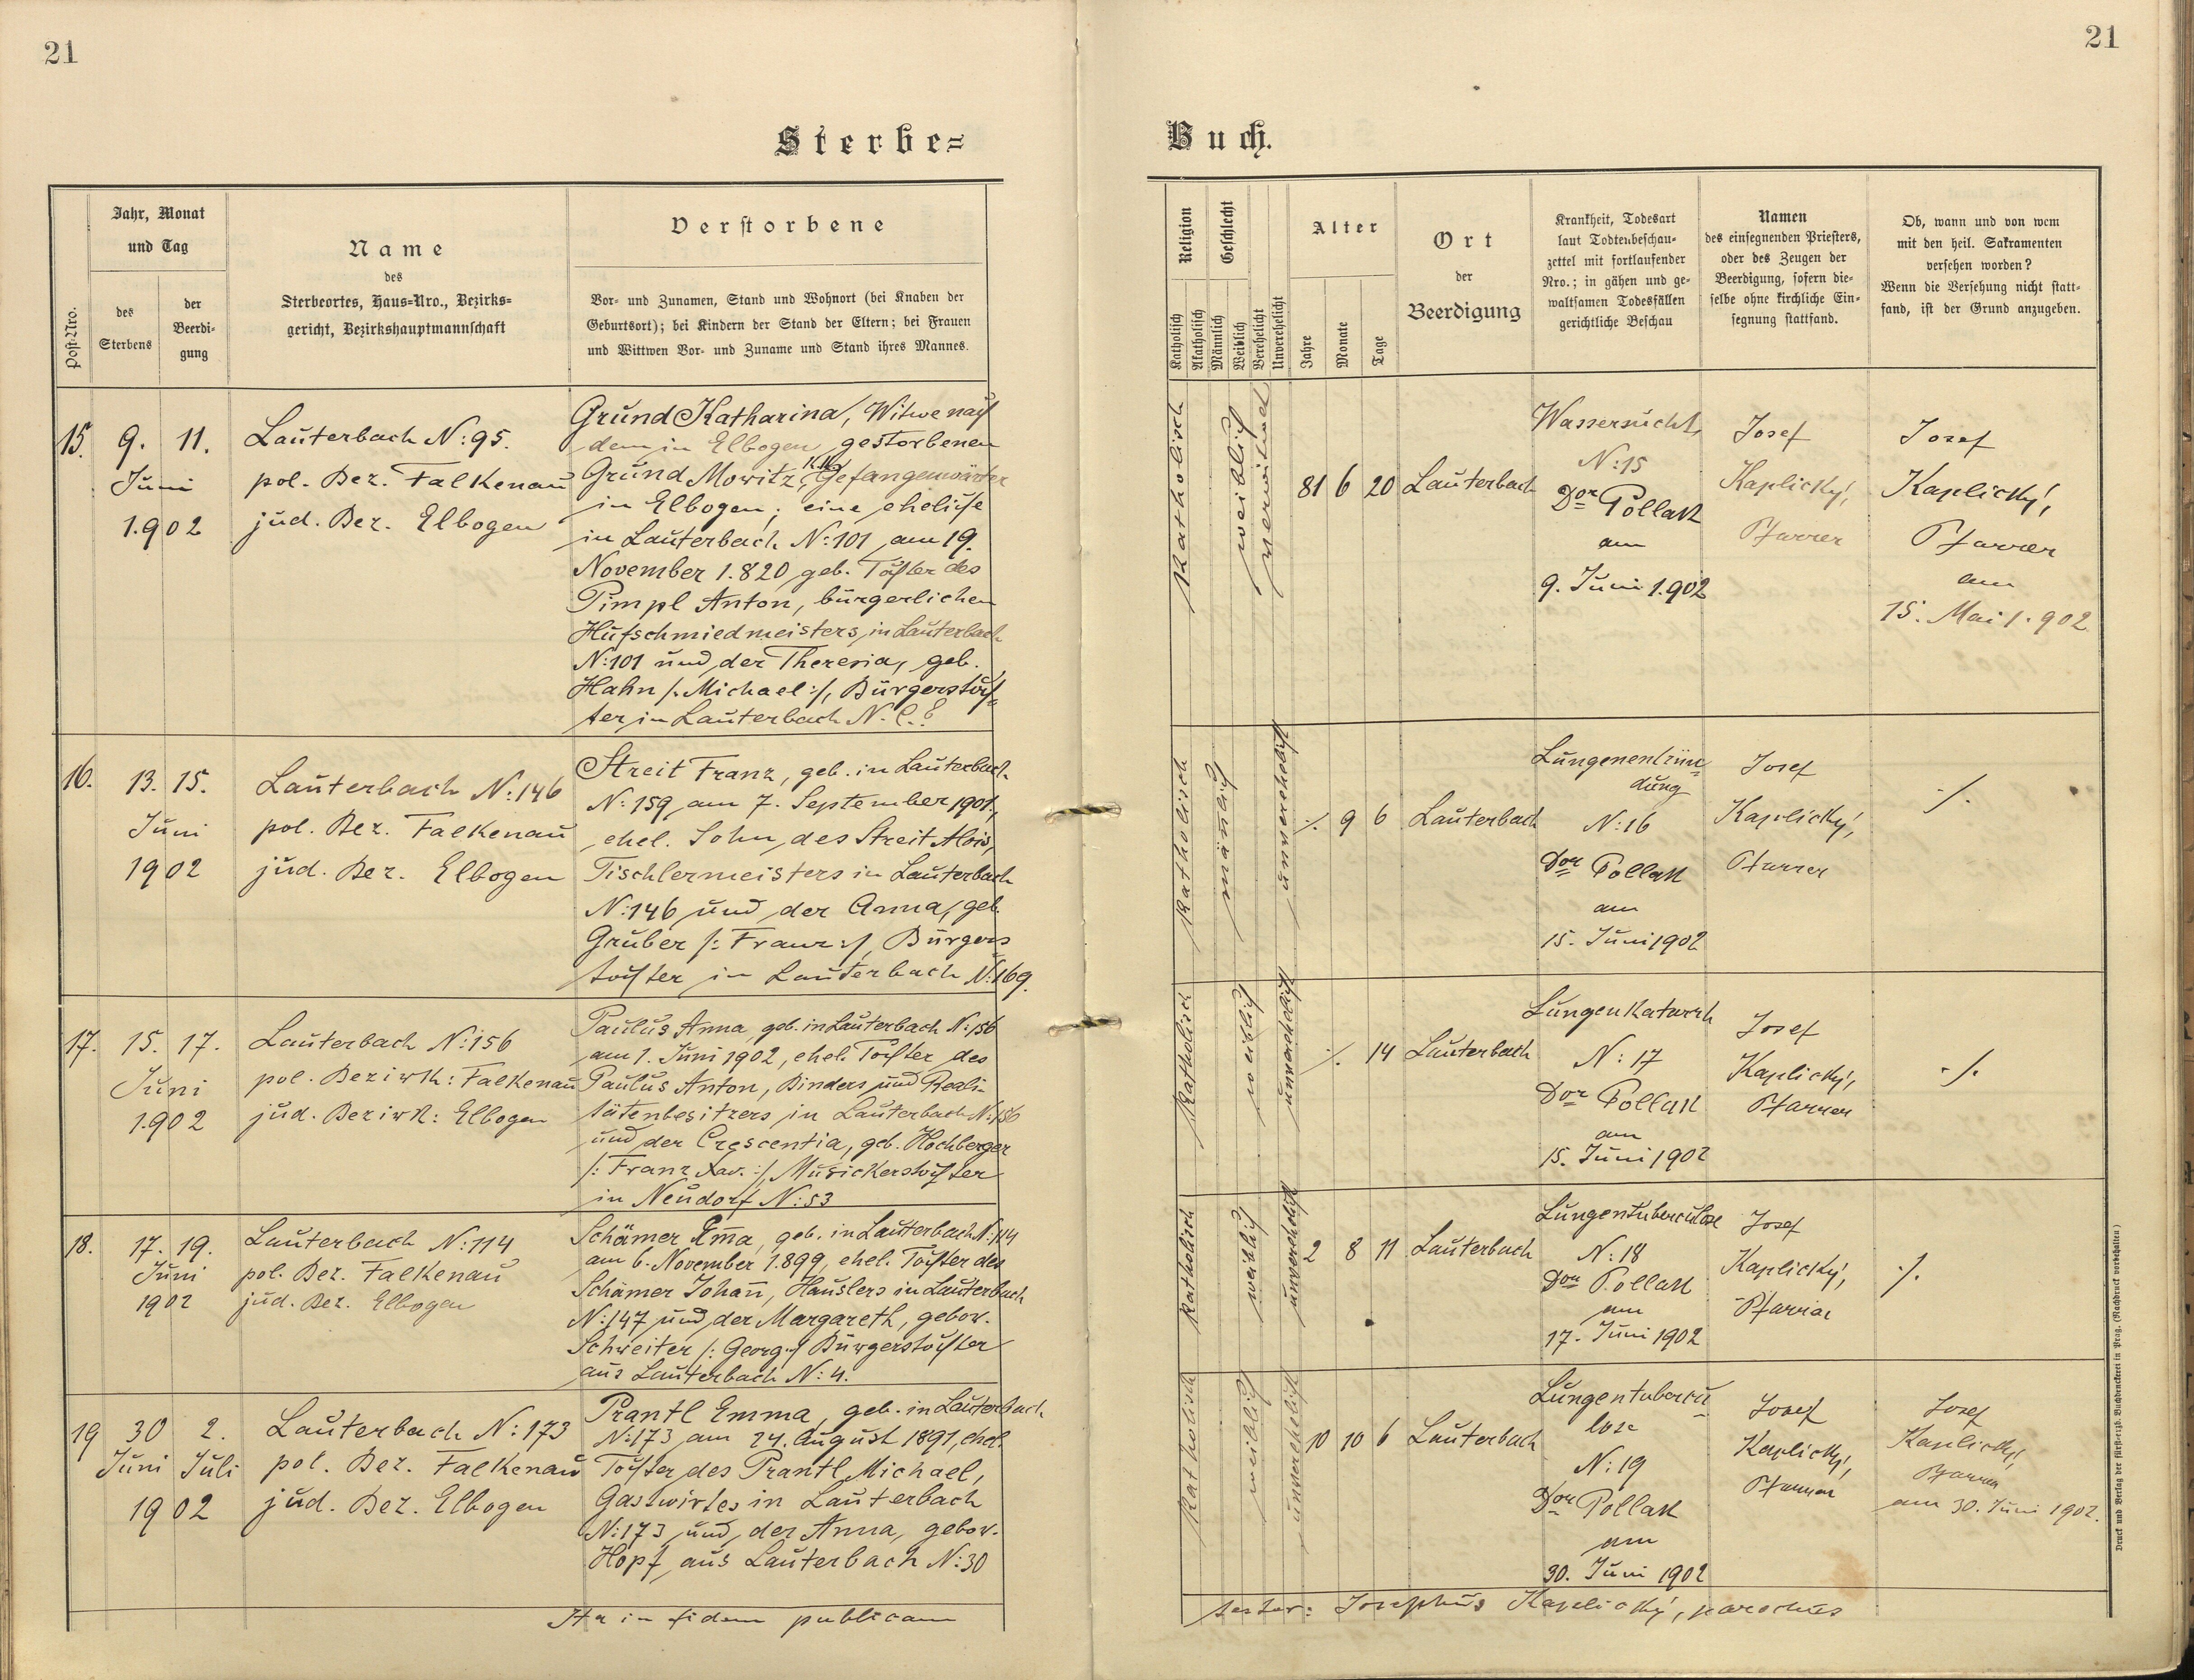 21
21
Sterbe=
Buch.
Post-Nro.
Jahr, Monat
und Tag
des
Sterbens
der
Beerdi-
gung
Name
des
Sterbeortes, Haus=Nro., Bezirks=
gericht, Bezirkshauptmannschaft
Verstorbene
Vor- und Zunamen, Stand und Wohnort (bei Knaben der
Geburtsort); bei Kindern der Stand der Eltern; bei Frauen
und Wittwen Vor- und Zuname und Stand ihres Mannes.
Religion
Katholisch
Akatholisch
Geschlecht
Männlich
Weiblich
Verehelicht
Unverehelicht
Alter
Jahre
Monate
Tage
Ort
der
Beerdigung
Krankheit, Todesart
laut Todtenbeschau-
zettel mit fortlaufender
Nro.; in gähen und ge-
waltsamen Todesfällen
gerichtliche Beschau
Namen
des einsegnenden Priesters,
oder des Zeugen der
Beerdigung, sofern die-
selbe ohne kirchliche Ein-
segnung stattfand.
Ob, wann und von wem
mit den heil. Sakramenten
versehen worden?
Wenn die Versehung nicht statt-
fand, ist der Grund anzugeben.
15.
9. 11.
Juni
1.902
Lauterbach N:95.
pol. Bez. Falkenau
jud. Bez. Elbogen
Grund Katharina, Witwe nach
dem in Elbogen gestorbenen
Grund Moritz, k.k. Gefangenwärter
in Elbogen; eine eheliche
in Lauterbach N:101 am 19.
November 1.820 geb. Tochter des
Pimpl Anton, bürgerlichen
Hufschmiedmeisters in Lauterbach
N:101 und der Theresia, geb.
Hahn /: Michael :/, Bürgerstoch-
ter in Lauterbach N. C. ?
katholisch
weiblich
verwitwed
81 6 20
Lauterbach
Wassersucht,
N:15
Dor Pollak
am
9. Juni 1.902
Josef
Kaplický,
Pfarrer
Josef
Kaplický,
Pfarrer
am
15. Mai 1.902
16.
13. 15.
Juni
1902
Lauterbach N:146
pol. Bez. Falkenau
jud. Bez. Elbogen
Streit Franz, geb. in Lauterbach
N:159 am 7. September 1901,
ehel. Sohn des Streit Alois,
Tischlermeisters in Lauterbach
N:146 und der Anna, geb.
Gruber /: Franz :/, Bürgers
tochter in Lauterbach N:169.
katholisch
mänlich
unverehelicht
./. 9 6
Lauterbach
Lungenentzün-
dung
N:16
Dor Pollak
am
15. Juni 1902
Josef
Kaplický,
Pfarrer
./.
17.
15. 17.
Juni
1.902
Lauterbach N:156
pol. Bezirk: Falkenau
jud. Bezirk: Elbogen
Paulus Anna, geb. in Lauterbach N:156
am 1. Juni 1902, ehel. Tochter des
Paulus Anton, Binders und Reali-
tätenbesitzers in Lauterbach N:156
und der Crescentia, geb. Hochberger
/: Franz Xav. :/, Musickerstochter
in Neudorf N:53
katholisch
weiblich
unverehelicht
./. 14
Lauterbach
Lungenkatarrh
N:17
Dor Pollak
am
15. Juni 1902
Josef
Kaplický,
Pfarrer
./.
18.
17. 19.
Juni
1902
Lauterbach N:114
pol. Bez. Falkenau
jud. Bez. Elbogen
Schämer Em̄a, geb. in Lauterbach N:114
am 6. November 1.899, ehel. Tochter des
Schämer Johan̄, Häuslers in Lauterbach
N:147 und der Margareth, gebor.
Schreiter /: Georg :/ Bürgerstochter
aus Lauterbach N:4.
katholisch
weiblich
unverehelicht
2 8 11
Lauterbach
Lungentuberculose
N:18
Dor Pollak
am
17. Juni 1902
Josef
Kaplický,
Pfarrer
./.
19
30 2.
Juni Juli
1902
Lauterbach N:173
pol. Bez. Falkenau
jud. Bez. Elbogen
Prantl Emma, geb. in Lauterbach
N:173 am 24. August 1891, ehel.
Tochter des Prantl Michael,
Gastwirtes in Lauterbach
N:173 und der Anna, gebor.
Hopf, aus Lauterbach N:30
katholisch
weiblich
unverehelicht
10 10 6
Lauterbach
Lungentubercu-
lose
N:19
Dor Pollak
am
30. Juni 1902
Josef
Kaplický,
Pfarrer
Josef
Kaplický,
Pfarrer
am 30. Juni 1902.
Ita in fidem publicam
testor: Josephus Kaplický, parochus
Druck und Verlag der fürst-erzb. Buchdruckerei in Prag. (Nachdruck vorbehalten)